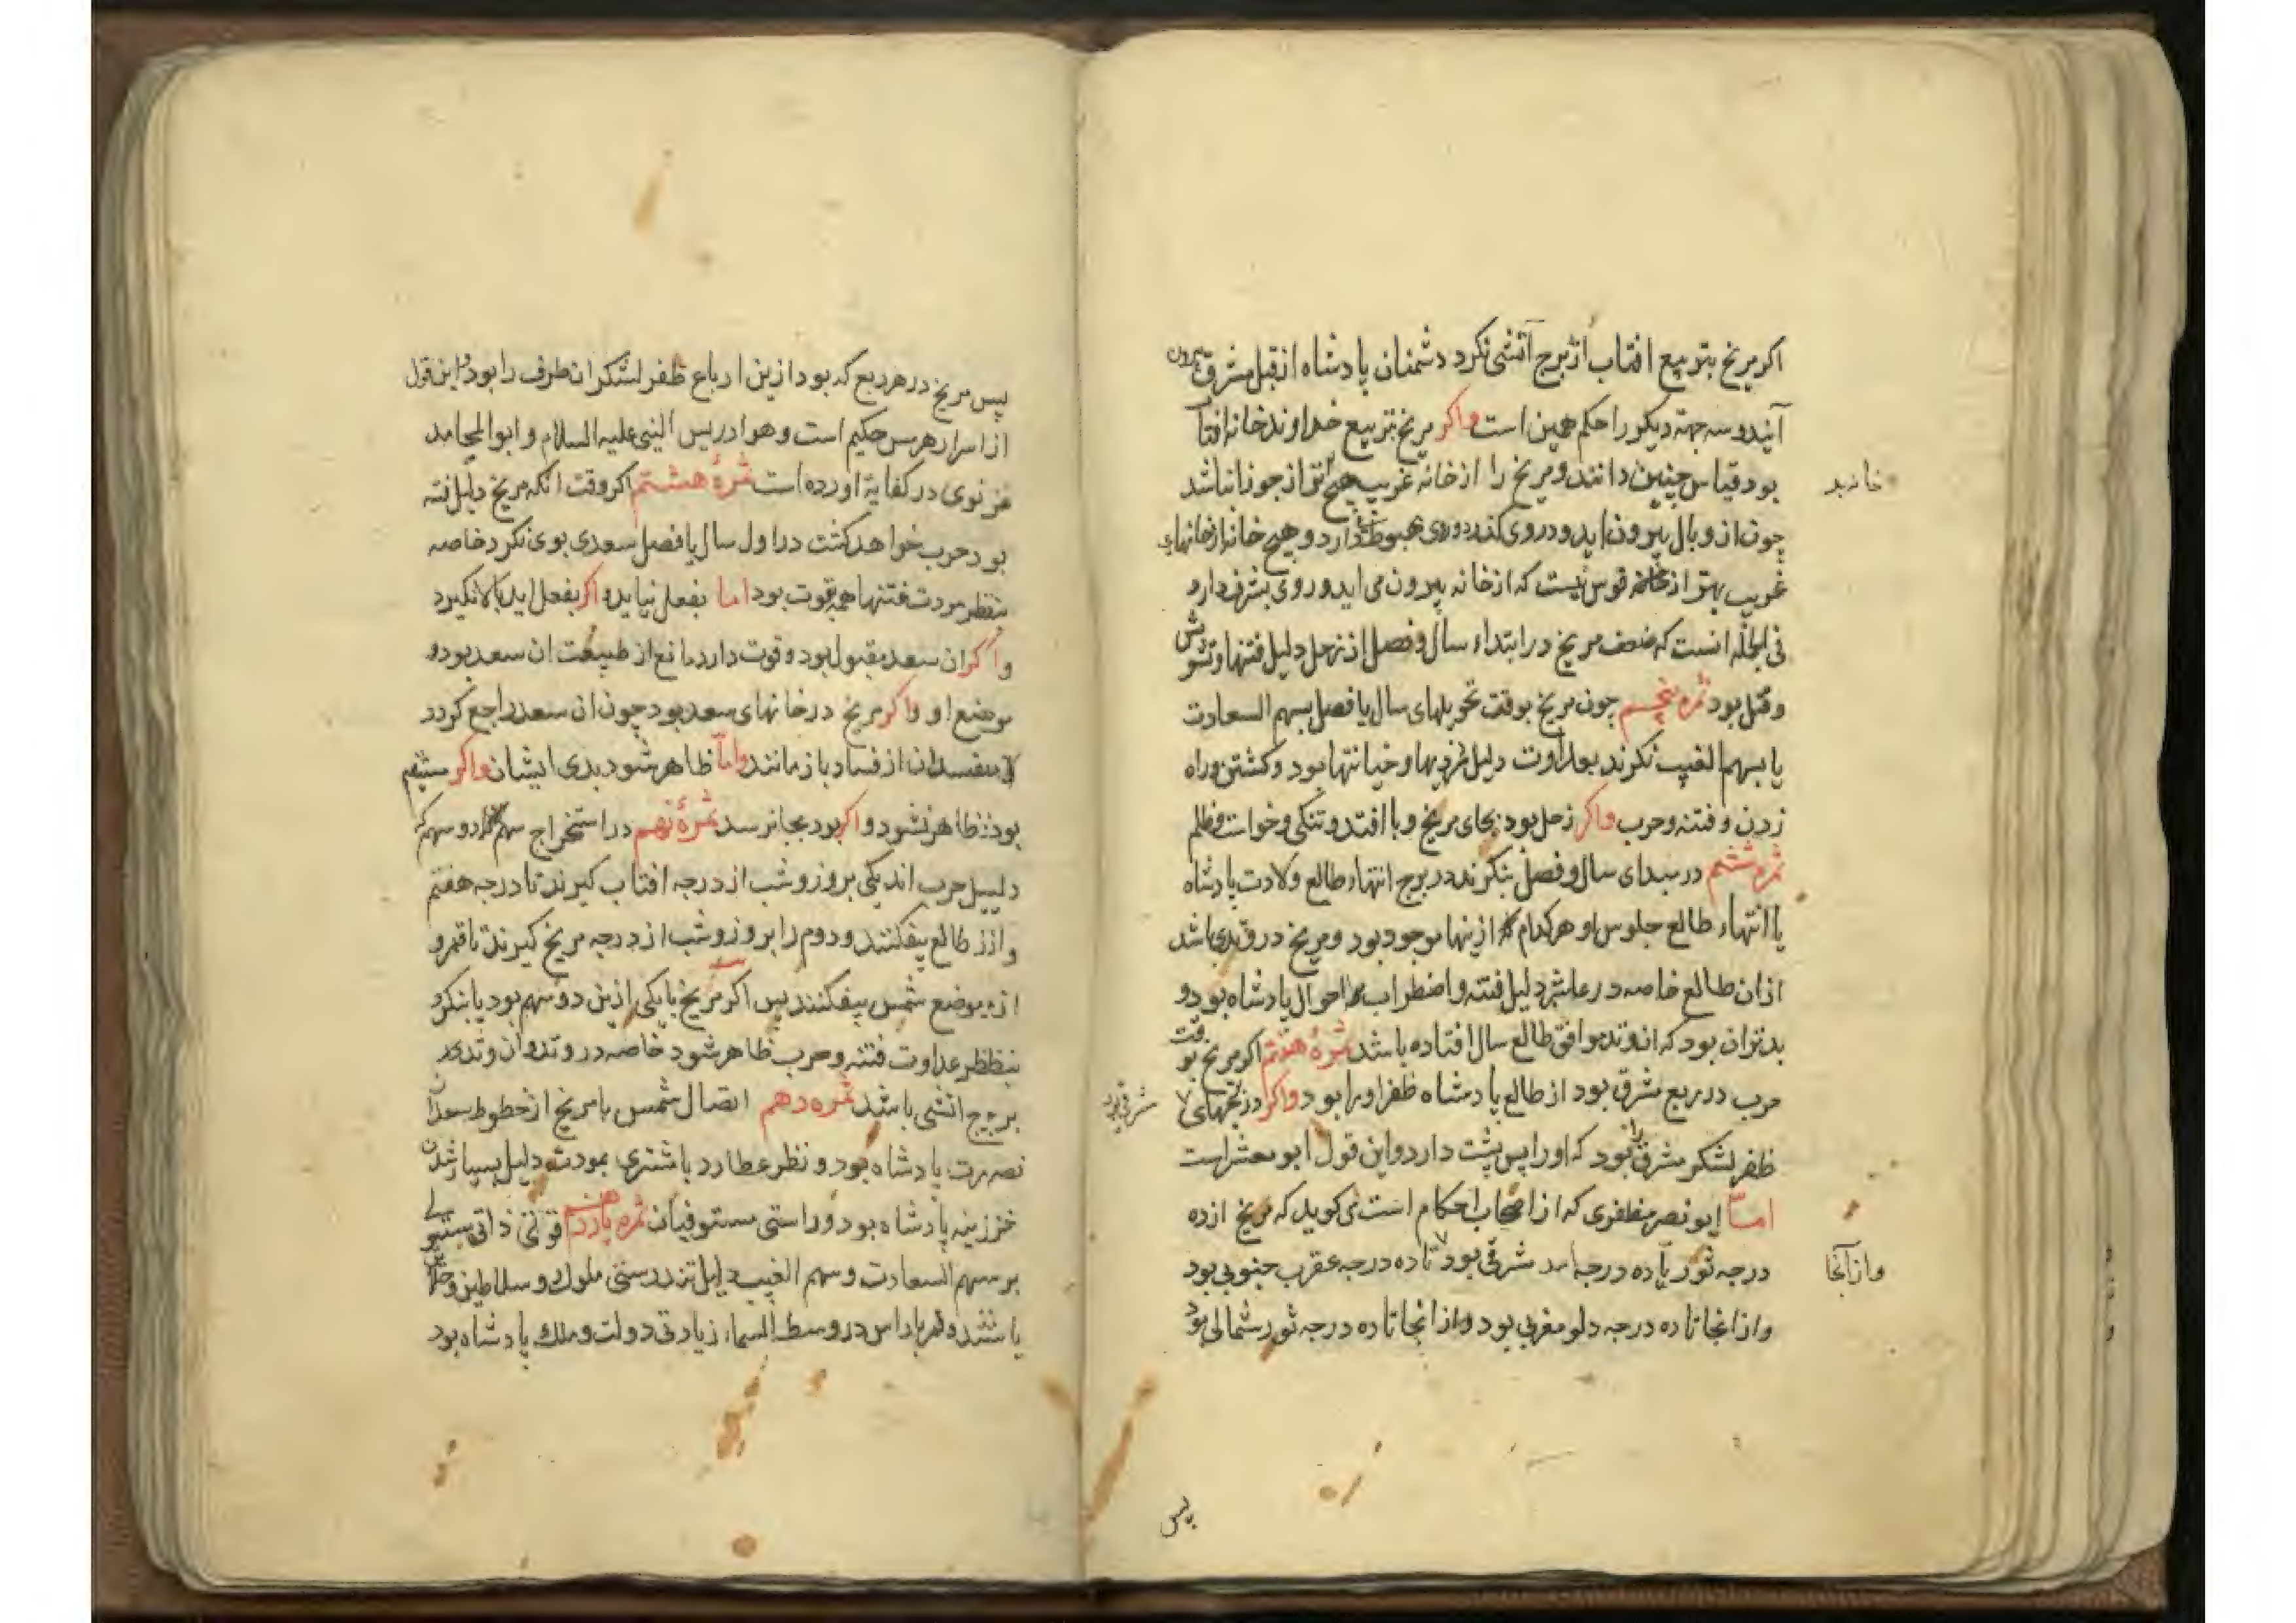 اکر مریخ بتربیع افتاب از برج آتشی نکرد دشمنان پادشاه از قبل مشرق بیرون
آیند و سه جهة دیکر را حکم همین است واکر مریخ بتربیع خداوند خانه افتا
بود قیاس چنین دانند و مریخ را از خانه غریب هیچ بتر از جوزا نباشد
خانه بد
چون از وبال بیرون اید و در وی کند و روی بهبوط دارد و هیچ خانه از خانهاء
غریب بهتر از خانه قوس نیست که از خانه بیرون می اید و روی بشرف دارد
فی الجمله انست که ضعف مریخ در ابتداء سال و فصل از زحل دلیل فتنها و تشویش
و قتل بود ثمره پنجم چون مریخ بوقت تحویلهای سال یا فصل بسهم السعادت
یا بسهم الغیب نکرند بعداوت دلیل دزدیها و خیانتها بود و کشتن و راه
زدن و فتنه و حرب واکر زحل بود بجای مریخ وبا افتد و تنکی و خواست و ظلم
ثمره ششم در مبدای سال و فصل بنکرند در برج انتهاء طالع ولادت پادشاه
یا انتهاء طالع جلوس او هر کدام از ینها موجود بود و مریخ در وتدی باشد
از ان طالع خاصه در عاشر دلیل فتنه و اضطراب احوال پادشاه بود و
بدتر ان بود که ان وتد موافق طالع سال افتاده باشد ثمرهٔ هفتم اکر مریخ بوقت
حرب در ربع شرقی بود از طالع پادشاه ظفر او را بود واکر در بجهای
شرقی بود
ظفر لشکر مشرق را بود که او را پس پشت دارد و این قول ابو معشر است
اما ابو نصر مظفری که از اصحاب احکام است می کوید که مریخ از ده
درجه ثور تا ده درجه اسد شرقی بود تا ده درجه عقرب جنوبی بود
و از آنجا
و از انجا تا ده درجه دلو مغربی بود و از انجا تا ده درجه ثور شمالی بود
پس
پس مریخ در هر ربع که بود ازین ارباع ظفر لشکر ان طرف را بود و این قول
از اسرار هرمس حکیم است و هو ادریس النبی علیه السلام و ابو المحامد
غزنوی در کفایة اورده است ثمرهٔ هشتم اکر وقت انکه مریخ دلیل فتنه
بود حرب خواهد کشت در اول سال یا فصل سعدی بوی نکرد خاصه
بنظر مودت فتنها همه بقوت بود اما بفعل نیاید و اکر بفعل اید بالا نکیرد
و اکر ان سعد مقبول بود و قوت دارد مانع از طبیعت ان سعد بود و
موضع او واکر مریخ در خانهای سعد بود چون ان سعد راجع کردد
مفسدان از فساد باز مانند واما ظاهر شود بدی ایشان واکر مستقیم
بود ظاهر نشود و اکر بود بجا نرسد ثمرهٔ نهم در استخراج دو سهم که
دلیل حرب اند یکی بروز و شب از درجه افتاب کیرند تا درجه هفتم
و از طالع بیفکنند و دوم را بروز و شب از درجه مریخ کیرند تا قمر و
از موضع شمس بیفکنند پس اکر مریخ با یکی ازین دو سهم بود یا بنکرد
بنظر عداوت فتنه و حرب ظاهر شود خاصه در وتد و ان وتد در
برج اتشی باشد ثمره دهم اتصال شمس با مریخ از خطوط سعدان
نصرت پادشاه بود و نظر عطارد با مشتری بمودت دلیل بسیار شدن
خزینه پادشاه بود و راستی مستوفیان ثمره یازدهم قوتی ذاتی مستولی
بر سهم السعادت و سهم الغیب دلیل تندرستی ملوک و سلاطین و خلایق
باشد و قمر با راس در وسط السماء زیادتی دولت و ملک پادشاه بود